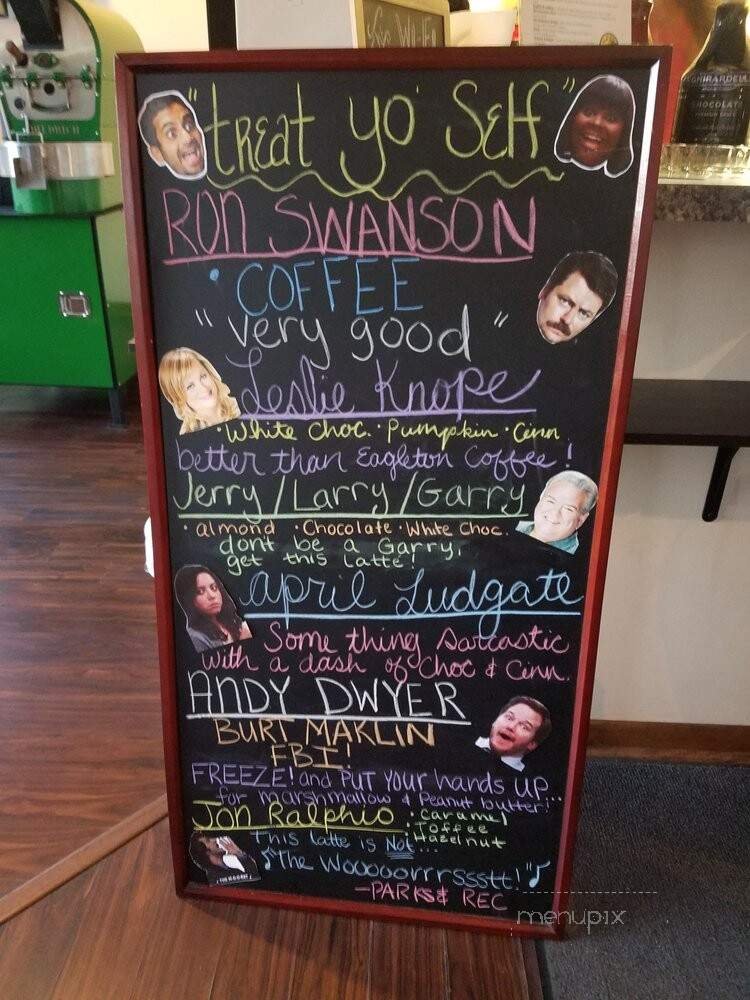 "treat yo' Self"
RON SWANSON
• COFFEE
"very good"
Leslie Knope
• White Choc. • Pumpkin • Cinn
better than Eagleton Coffee!
Jerry/Larry/Garry
• almond • Chocolate • White Choc.
don't be a Garry,
get this latte!
April Ludgate
Some thing Sarcastic
with a dash of Choc & Cinn.
ANDY DWYER
BURT MAKLIN
FBI!
FREEZE! and PUT YOUR hands UP...
for marshmallow & Peanut butter!
Jon Ralphio
• Caramel
Toffee
Hazelnut
This latte is Not...
♪"The Wooooorrrsssstt!"♪
-PARKS & REC
menupix
GHIRARDELLI
CHOCOLATE